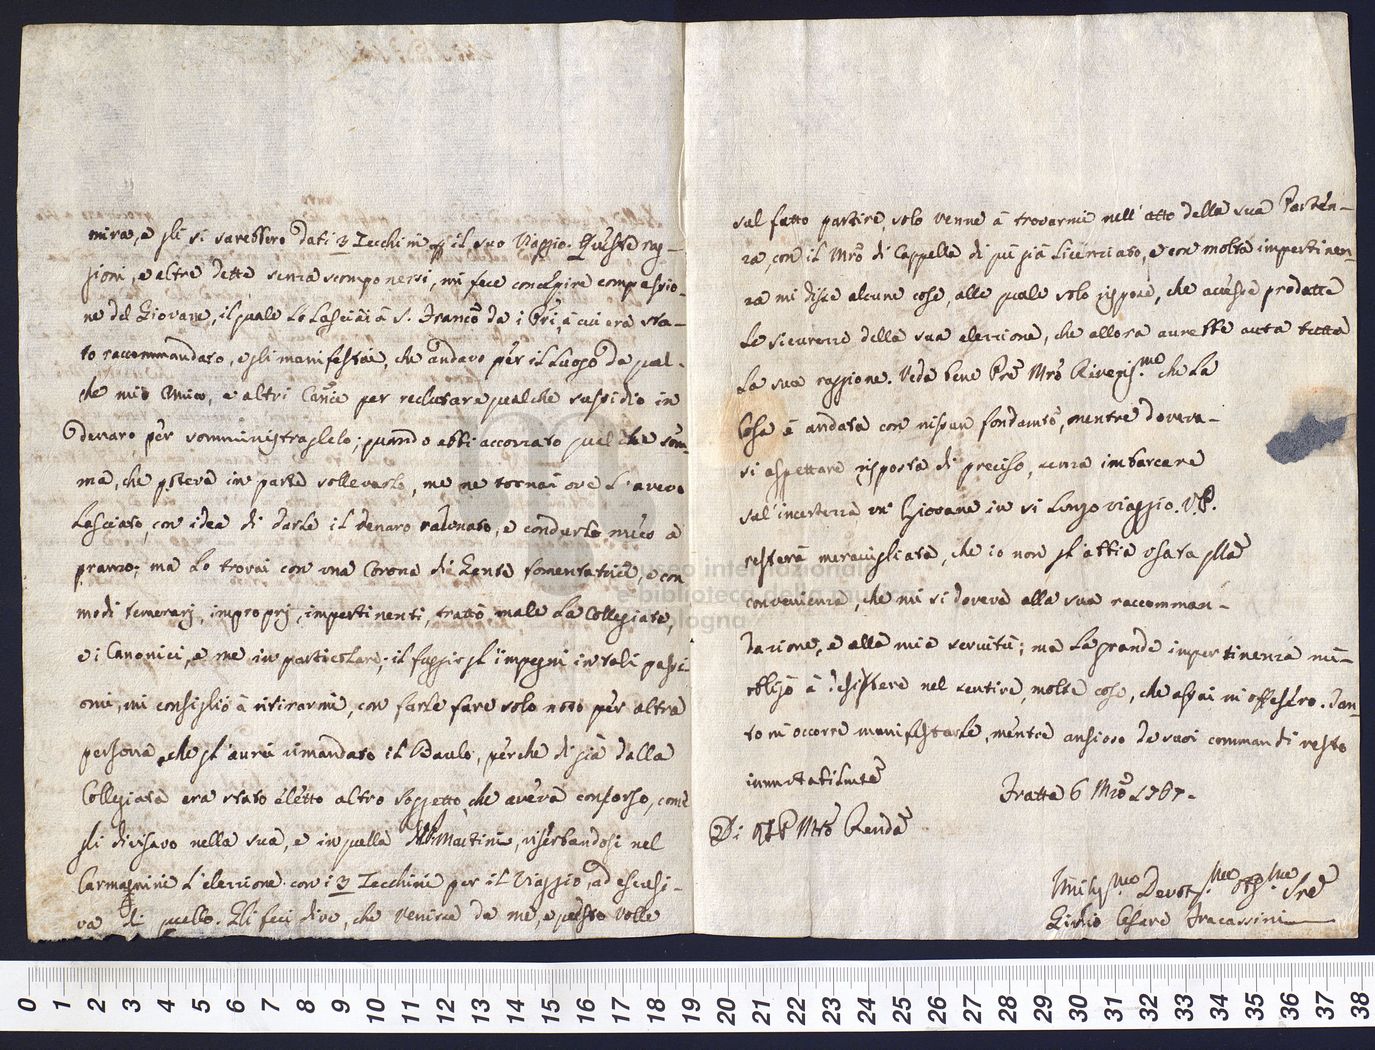 mira, e gli si sarebbero dati 3 Zecchini p il suo Viaggio. Queste rag-
gioni, e altre dette senza scomponersi, mi fece concepire compassio-
ne del Giovane, il quale Lo Lasciai à S. Franco da i Pri, à cui era sta-
to raccommandato, e gli manifestai, che andavo per il Luogo da qual-
che mio Amico, e altri per reclutare qualche sussidio in
denaro per somministraglelo; quando ebbi accozzato qualche som-
ma, che poteva in parte sollevarlo, me ne tornai ove L'avevo
Lasciato, con idea di darle il denaro radunato, e condurlo meco à
pranzo; ma Lo trovai con una Corona di Gente fomentatrice, e con
modi temerarj, improprj, impertinenti, trattò male La Collegiata,
e i Canonici, e me in particolare; il fuggir gl'impegni in tali passi
mi consigliò à ritirarmi, con farle fare solo noto per altra
persona, che gl'avrei rimandato il Baulo, perche di già dalla
Collegiata era stato eletto altro Soggetto, che aveva concorso, come
gli divisavo nella sua, e in quella Martini, riserbandosi nel
Carmagnini L'elezzione con i 3 Zecchini per il Viaggio, ad esclusi-
va di quello. Gli feci dire, che venisse da me, e questo volle
sul fatto partire, solo venne à trovarmi nell'atto della sua Parten-
za, con il Mro di Cappella di qui già Licenziato, e con molta impertinen-
za mi disse alcune cose, alle quale solo risposi, che avesse prodotte
Le sicurezze della sua elezzione, che allora aurebbe auta tutta
La sua raggione. Veda bene Pre Mro Riveris.mo che La
Cosa è andata con nissun fondamto, mentre doveva-
si aspettare risposta di preciso, senza imbarcare
sul'incertezza un Giovane in si Lungo viaggio. V.P.
resterà meravigliata, che io non gl'abbia usata qlla
convenienza, che mi si doveva alla sua raccomman-
dazione, e alla mia servitù; ma La grande impertinenza mi
obligò à desistere nel sentire, molte cose, che assai mi offesero. Tan-
to mi occorre manifestarle, mentre ansioso de suoi commandi resto
immutabilmte
Fratta 6 Mzo 1767.
Di V.P. Mto Renda
Umilis.mo Devot.mo Obb.mo Sre
Giulio Cesare Fracassini
museo internazionale
e biblioteca della musica
di bologna
0 1 2 3 4 5 6 7 8 9 10 11 12 13 14 15 16 17 18 19 20 21 22 23 24 25 26 27 28 29 30 31 32 33 34 35 36 37 38